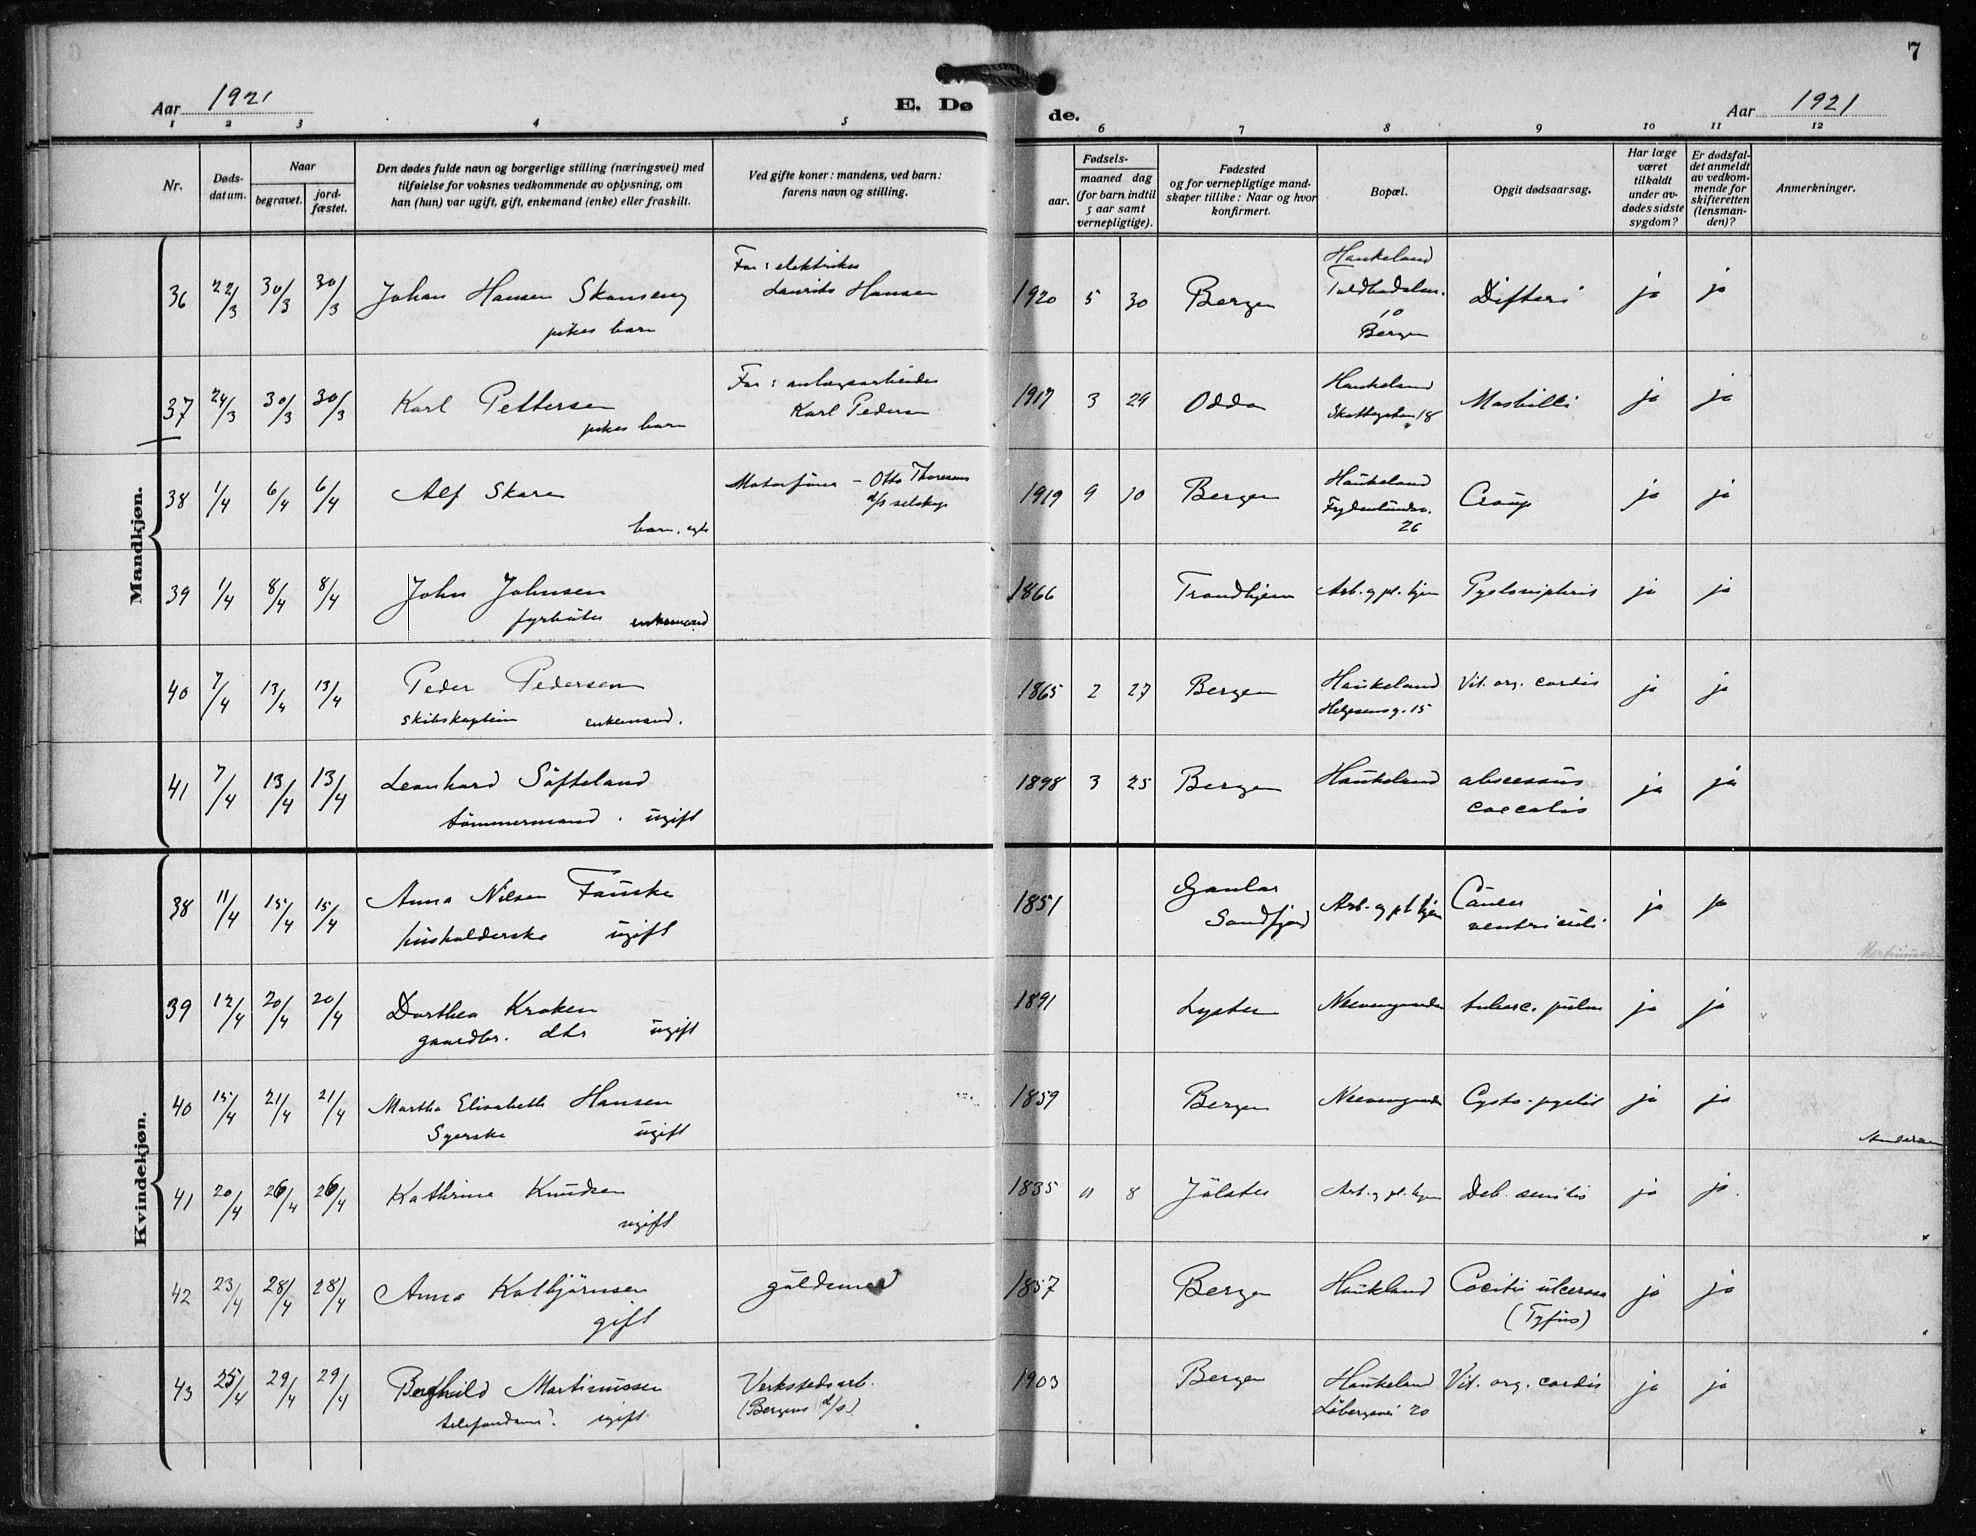 7
Aar 1921
E. Dø
de.
Aar 1921
1 2 3 4 5 6 7 8 9 10 11 12
Nr.
Døds-
datum.
Naar
begravet.
jord-
fæstet.
Den dødes fulde navn og borgerlige stilling (næringsvei) med
tilføielse for voksnes vedkommende av oplysning, om
han (hun) var ugift, gift, enkemand (enke) eller fraskilt.
Ved gifte koner: mandens, ved barn:
farens navn og stilling.
Fødsels-
aar.
maaned dag
(for barn indtil
5 aar samt
vernepligtige).
Fødested
og for vernepligtige mand-
skaper tillike: Naar og hvor
konfirmert.
Bopæl.
Opgit dødsaarsag.
Har læge
været
tilkaldt
under av-
dødes sidste
sygdom?
Er dødsfal-
det anmeldt
av vedkom-
mende for
skifteretten
(lensman-
den)?
Anmerkninger.
Mandkjøn.
36 22/3 30/3 30/3 Johan Hansen
pikes barn
Far: elektriker
Laurits Hansen
1920 5 30 Bergen
Haukeland
10
Bergen
Difteri ja ja
37 24/3 30/3 30/3 Karl Pettersen
pikes barn
Far: anlægsarbeider
Karl Pedersen
1917 3 29 Odda
Haukeland
18
Morbilli ja ja
38 1/4 6/4 6/4 Alf Skare
barn, egte
Motorfører - Otto Thoresens
d/s selskap
1919 9 10 Bergen
Haukeland
Frydenlundsv.
26
Croup ja ja
39 1/4 8/4 8/4 John Johnsen
fyrbøter enkemand
1866 Trondhjem Arb. og pl. hjem ja ja
40 7/4 13/4 13/4 Peder Pedersen
skibskaptein enkemand.
1865 2 27 Bergen
Haukeland
Helgesensg. 15
Vit. org. cordis ja ja
41 7/4 13/4 13/4 Leonhard Søfteland
tømmermand. ugift
1898 3 25 Bergen Haukeland
abscessus
coecalis
ja ja
Kvindekjøn.
38 11/4 15/4 15/4 Anna Nilsen Fauske
husholderske ugift
1851
Gaular
Søndfjord
Arb. og pl. hjem
Cancer
ventriculi
ja ja
39 12/4 20/4 20/4 Dorthea Kroken
gaardbr. dtr ugift
1891 Lyster Neevengaarden tuberc. pulm ja ja
40 15/4 21/4 21/4 Martha Elisabeth Hansen
Syerske ugift
1859 Bergen Neevengaarden Cysto-pyelit ja ja
41 20/4 26/4 26/4 Kathrine Knudsen
ugift
1835 11 8 Jølster Arb. og pl. hjem Deb. senilis ja ja.
42 23/4 28/4 28/4 Anna Kolbjørnsen
gift
guldsmed
1857 Bergen Haukland
Coecitis ulcerosa
(Tyfus)
ja ja
43 25/4 29/4 29/4 Borghild Martinussen
ugift
Verkstedsarb.
(Bergens d/s)
1903 Bergen
Haukeland
20
Vit. org. cordis ja ja